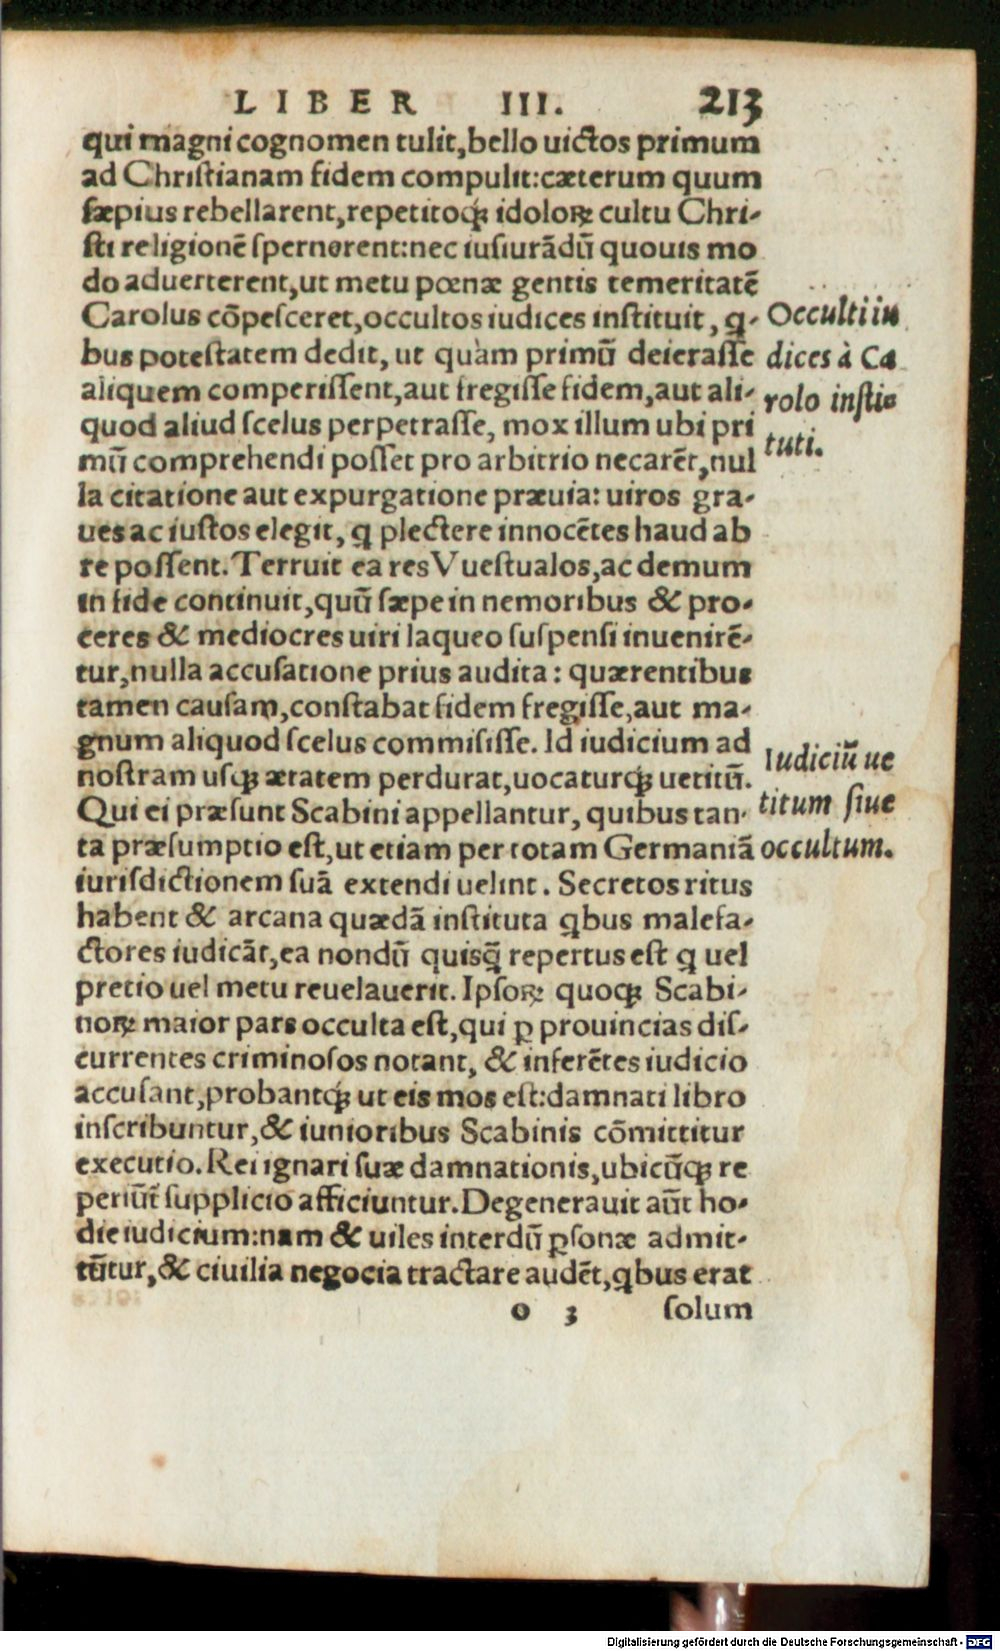 LIBER III. 213
qui magni cognomen tulit, bello uictos primum
ad Christianam fidem compulit: cæterum quum
sæpius rebellarent, repetitoq́ꝫ idoloꝝ cultu Chri-
sti religionẽ spernerent: nec iusiurãdũ quouis mo
do aduerterent, ut metu pœnæ gentis temeritatẽ
Carolus cõpesceret, occultos iudices instituit, q-
bus potestatem dedit, ut quàm primũ deierasse
aliquem comperissent, aut fregisse fidem, aut ali-
quod aliud scelus perpetrasse, mox illum ubi pri
mũ comprehendi posset pro arbitrio necarẽt, nul
la citatione aut expurgatione præuia: uiros gra-
ues ac iustos elegit, q plectere innocẽtes haud ab
re possent. Terruit ea res Vuestualos, ac demum
in fide continuit, quũ sæpe in nemoribus & pro-
ceres & mediocres uiri laqueo suspensi inuenirẽ-
tur, nulla accusatione prius audita: quærentibus
tamen causam, constabat fidem fregisse, aut ma-
gnum aliquod scelus commisisse. Id iudicium ad
nostram usqꝫ ætatem perdurat, uocaturq́ꝫ uetitũ.
Qui ei præsunt Scabini appellantur, quibus tan-
ta præsumptio est, ut etiam per totam Germaniã
iurisdictionem suã extendi uelint. Secretos ritus
habent & arcana quædã instituta qbus malefa-
ctores iudicãt, ea nondũ quisq̃ repertus est q uel
precio uel metu reuelauerit. Ipsoꝝ quoqꝫ Scabi-
noꝝ maior pars occulta est, qui ꝑ prouincias dis-
currentes criminosos notant, & inferẽtes iudicio
accusant, probantq́ꝫ ut eis mos est: damnati libro
inscribuntur, & iunioribus Scabinis cõmittitur
executio. Rei ignari suæ damnationis, ubicũqꝫ re
periũt supplicio afficiuntur. Degenerauit aũt ho-
die iudicium: nam & uiles interdũ ꝑsonæ admit-
tũtur, & ciuilia negocia tractare audẽt, qbus erat
o 3 solum
Occulti iu
dices à Ca
rolo insti-
tuti.
Iudiciũ ue
titum siue
occultum.
Digitalisierung gefördert durch die Deutsche Forschungsgemeinschaft - DFG